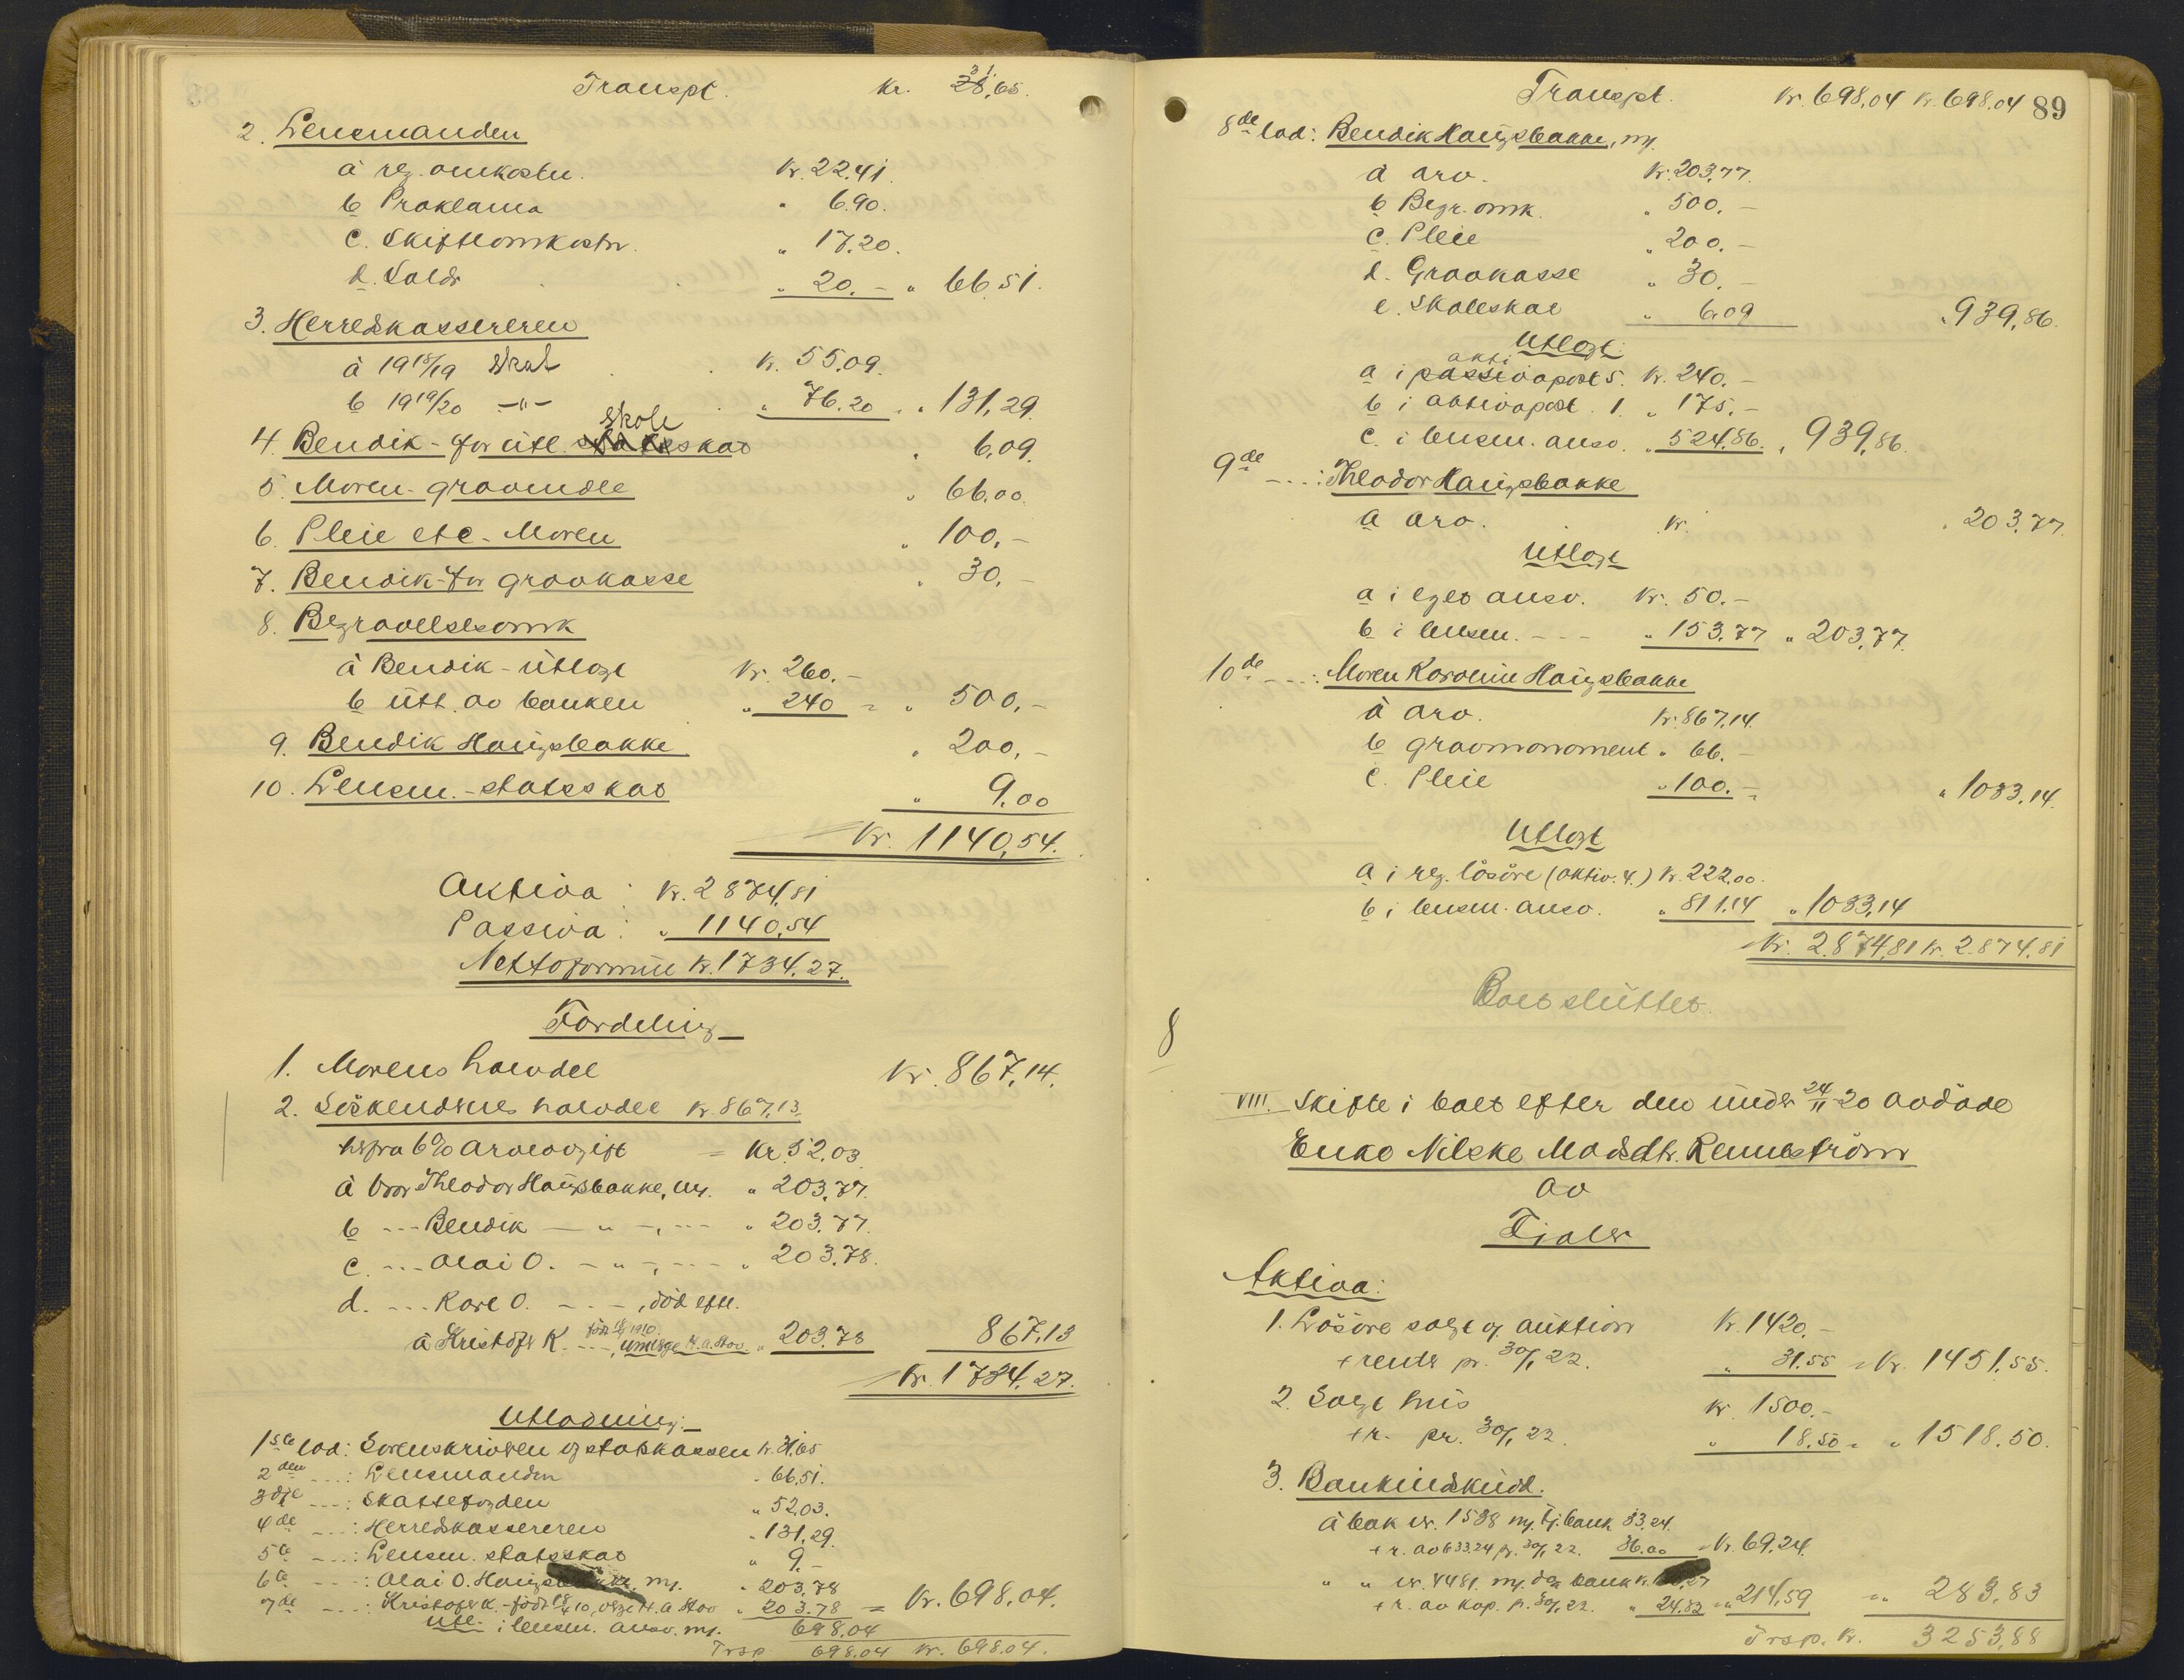 Transpt. kr. 31,65.
2. Lensmanden
a reg. omkostn. kr. 22.41.
b Proklama " 6.90.
c. Skifteomkostn. " 17.20.
d. Saldo " 20.- " 66.51.
3. Herredskassereren
a 1918/19 skat kr. 55.09.
b 1919/20 -"- " 76.20 " 131,29.
4. Bendik - for utl. skoleskat " 6,09.
5. Moren - gravmæle " 66.00
6. Pleie etc - Moren " 100,-
7. Bendik - for gravkasse " 30,-
8. Begravelsesomk
a Bendik - utlagt kr. 260.-
b utt. av banken " 240 = " 500,-
9. Bendik Haugsbakke " 200,-
10. Lensm. - statsskat " 9,00
kr. 1140,54.
Aktiva: kr. 2874,81
Passiva: " 1140,54
Nettoformue kr. 1734.27.
Fordeling
1. Morens halvdel kr. 867,14.
2. Söskendrenes halvdel kr. 867,13.
herfra 6% arveavgift = kr. 52.03
a bror Theodor Haugsbakke, my. " 203,77.
b --- Bendik - " -, --- " 203.77.
c. --- Olai O. - " -, --- " 203.78.
d. --- Kare O. - - -, död efti.
a Kristofer K. ---, född 18/4 1910. umynge H. A. Stov. " 203.78 867,13
kr. 1734.27.
Utlodning:
1ste lod: Sorenskriveren og statskassen kr. 31,65
2den ---: Lensmanden " 66,51.
3dje ---: Skattefogden " 52,03.
4de ---: Herredskassereren " 131,29.
5te ---: Lensm. statsskat " 9.-
6te ---: Olai O. Haugsbakke, my. " 203.78
7de ---: Kristofer K. - född 18/4 10, verge H. A. Stov " 203.78 = kr. 698,04.
Utl. i lensm. ansv. my. 698,04
Trsp 698.04 kr. 698.04.
Transpt. kr. 698,04 kr. 698,04 89
8de lod: Bendik Haugsbakke, my.
a arv. kr. 203,77.
b Begr. omk. " 500.-
c. Pleie " 200.-
d. Gravkasse " 30.-
e. Skoleskat " 6,09 " 939,86.
Utlagt:
akti
a i passivapost 5. kr. 240.-
b i aktivapost. 1. " 175.-
c. i lensm. ansv. " 524,86. " 939,86.
9de ---: Theodor Haugsbakke
a arv. kr. " 203,77.
Utlagt
a i eget ansv. kr. 50.-
b i lensm. --- " 153,77 " 203,77.
10de ---: Moren Karoline Haugsbakke
a arv. kr. 867,14.
b gravmonoment " 66.-
c. Pleie " 100.- " 1033,14.
Utlagt
a i reg. lösöre (aktiv. 4.) kr. 222,00.
b i lensm. ansv. " 811.14 " 1033,14
kr. 2.874,81 kr. 2.874,81
Boet sluttet.
8
VIII. Skifte i boet efter den under 24/11-20 avdöde
Enke Nilske Madsdtr. Renneström
av
Fjaler
Aktiva:
1. Lösöre solgt v/ auktion kr. 1420.-
+ renter pr. 30/1 22. " 31.55 = kr. 1451,55.
2. Solgt hus kr. 1500.-
+ r. pr. 30/1 22. " 18.50 = " 1518.50.
3. Bankindskudd.
a bok nr. 1538 my. Fj. bank 33,24.
+ r. av 633.24 pr. 30/1 22. 36.00 = kr. 69.24.
" " nr. 4481. my. bank kr.
+ r. av kap. pr. 30/1 22. " 24.82 = " 214,59 = " 283,83
Trsp. kr. 3253,88